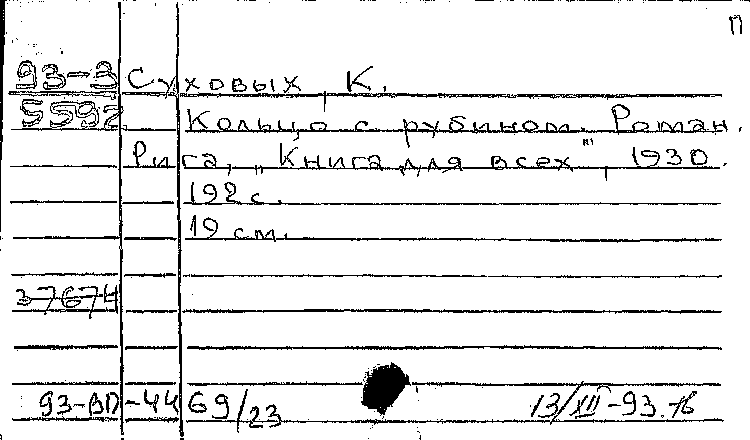 П
93-3 Суховых, К.
5592 Кольцо с рубином. Роман.
Рига, „Книга для всех", 1930.
192 с.
19 см.
37674
93-ВП-4469/23 13/XII-93.